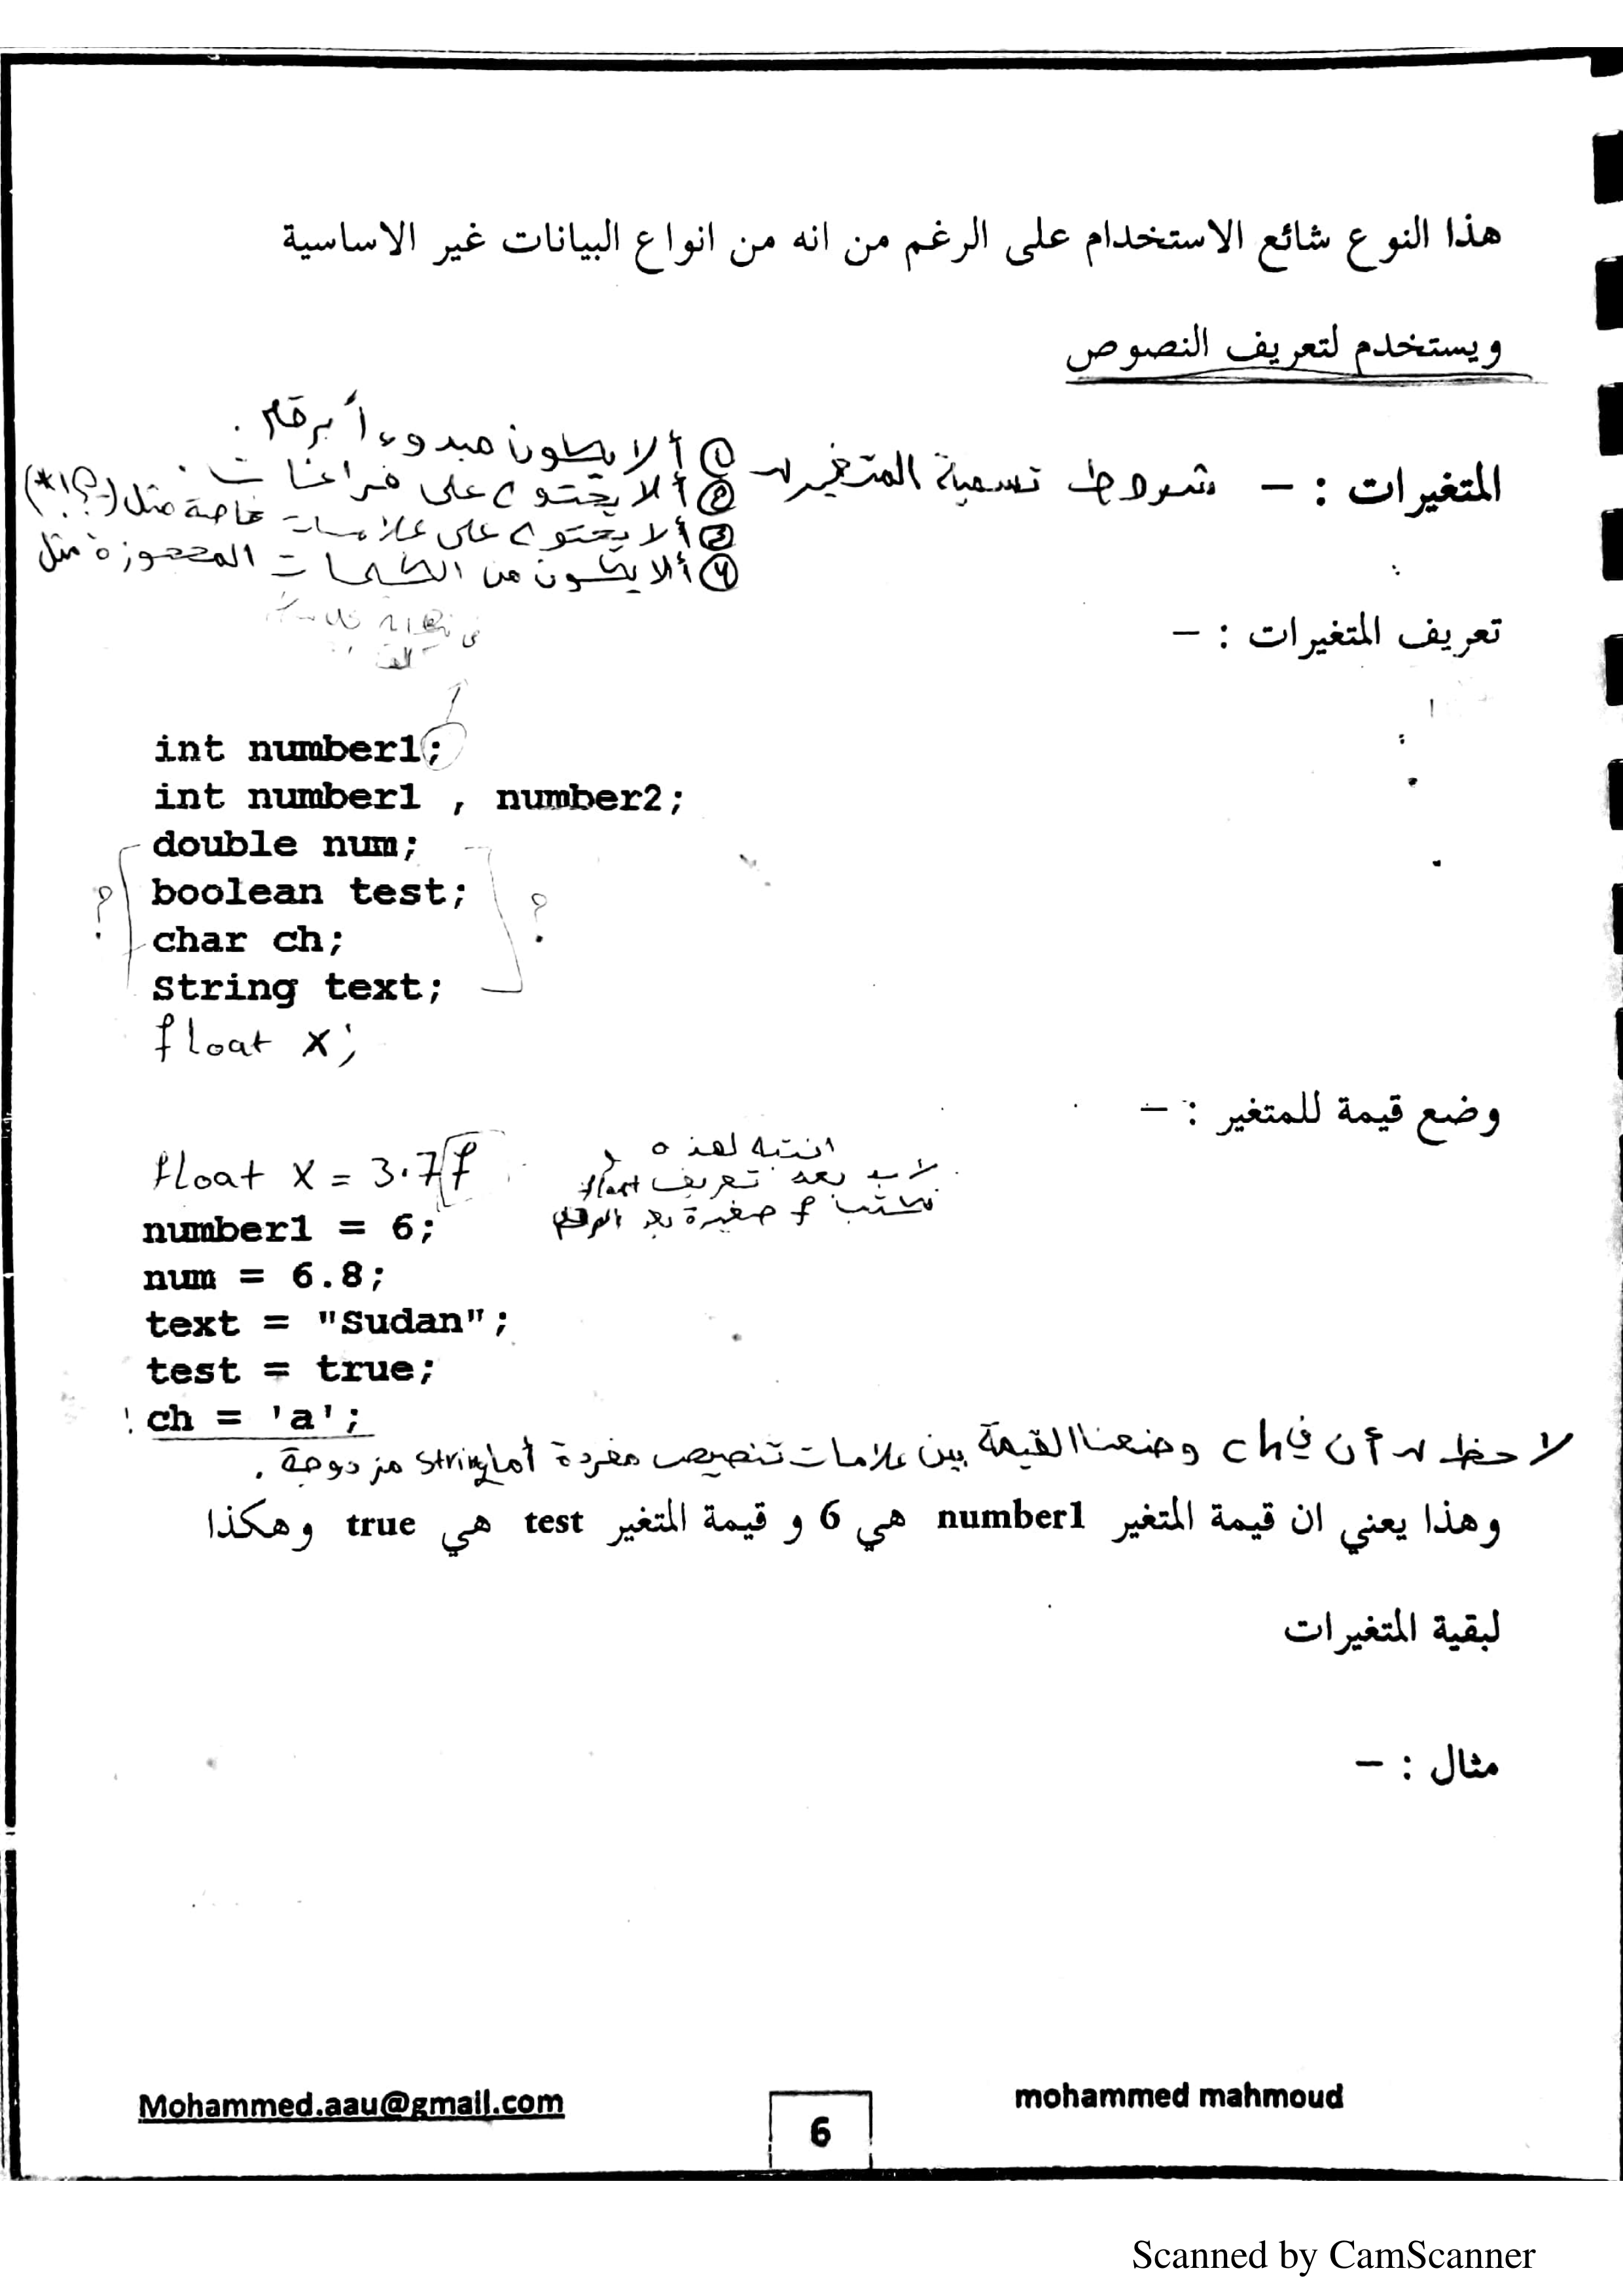 هذا النوع شائع الاستخدام على الرغم من انه من انواع البيانات غير الاساسية
ويستخدم لتعريف النصوص
المتغيرات : – شروط تسمية المتغير
① ألا يكون مبدوءاً برقم .
② ألا يحتوي على فراغات .
③ ألا يحتوي على علامات خاصة مثل (-؟!*)
④ ألا يكون من الكلمات المحجوزة مثل
تعريف المتغيرات : –
في نهاية
int number1;
int number1 , number2;
double num;
boolean test;
؟ ؟
char ch;
String text;
float x;
وضع قيمة للمتغير : –
انتبه لهذه
float x = 3.7f
لابد بعد تعريف float
نكتب f صغيرة بعد الرقم
number1 = 6;
num = 6.8;
text = "Sudan";
test = true;
ch = 'a';
لاحظ أن في ch وضعنا القيمة بين علامات تنصيص مفردة أما string مزدوجة .
وهذا يعني ان قيمة المتغير number1 هي 6 و قيمة المتغير test هي true وهكذا
لبقية المتغيرات
مثال : –
Mohammed.aau@gmail.com
6
mohammed mahmoud
Scanned by CamScanner